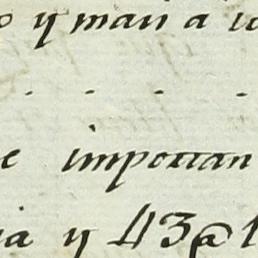 o y man a
e importan
ia y 43@1